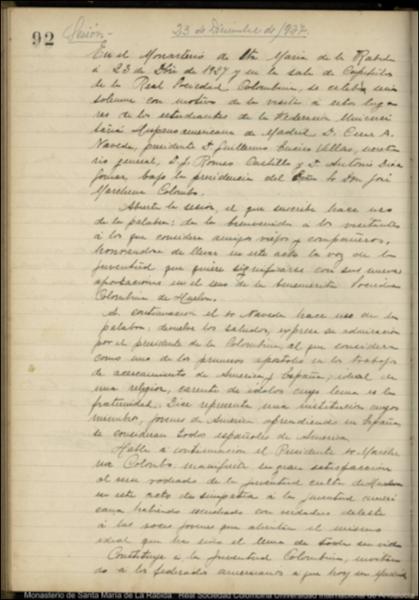 92
Sesión- 23 de Diciembre de 1927.
En el Monasterio de Sta María de la Rábida
á 23 de Dbre de 1927 y en la sala de Capítulos
de la Real Sociedad Colombina, se celebra sesión
solemne con motivo de la visita á estos luga-
res de los estudiantes de la Federación Universi-
taria Hispanoamericana de Madrid D. Cesar A.
Naveda, presidente D. Guillermo Villas, secreta-
rio general, D. J. Romeo Castillo y D. Antonio Diaz
bajo la presidencia del Sr D. José
Marchena Colombo.
Abierta la sesión, el que suscribe hace uso
de la palabra; da la bienvenida á los visitantes
á los que considera amigos viejos y compañeros,
honrandose de llevar en este acto la voz de la
juventud que quiere significarse con sus nuevas
aportaciones en el seno de la benemérita Sociedad
Colombina de Huelva.
A continuación el Sr Naveda hace uso de la
palabra: devuelve los saludos, expresa su admiración
por el presidente de la Colombina, al que considera
como uno de los primeros apóstoles en los trabajos
de acercamiento de América y España; ideal de
una religion, carente de ídolos cuyo lema es la
fraternidad. Dice representa una institución cuyos
miembros, jovenes de America aprendiendo en España
se consideran todos españoles de America.
Habla á continuación el Presidente Sr Marche-
na Colombo. Manifiesta su gran satisfacción
al verse rodeado de la juventud culta de
en este acto de simpatia á la juventud ameri-
cana habiendo escuchado con verdadero deleite
á las voces jovenes que alientan el mismo
ideal que ha sido el lema de toda su vida
Constituye á la Juventud Colombina, invitan-
do á los federados americanos a que hoy en Madrid
Monasterio de Santa María de La Rábida. Real Sociedad Colombina